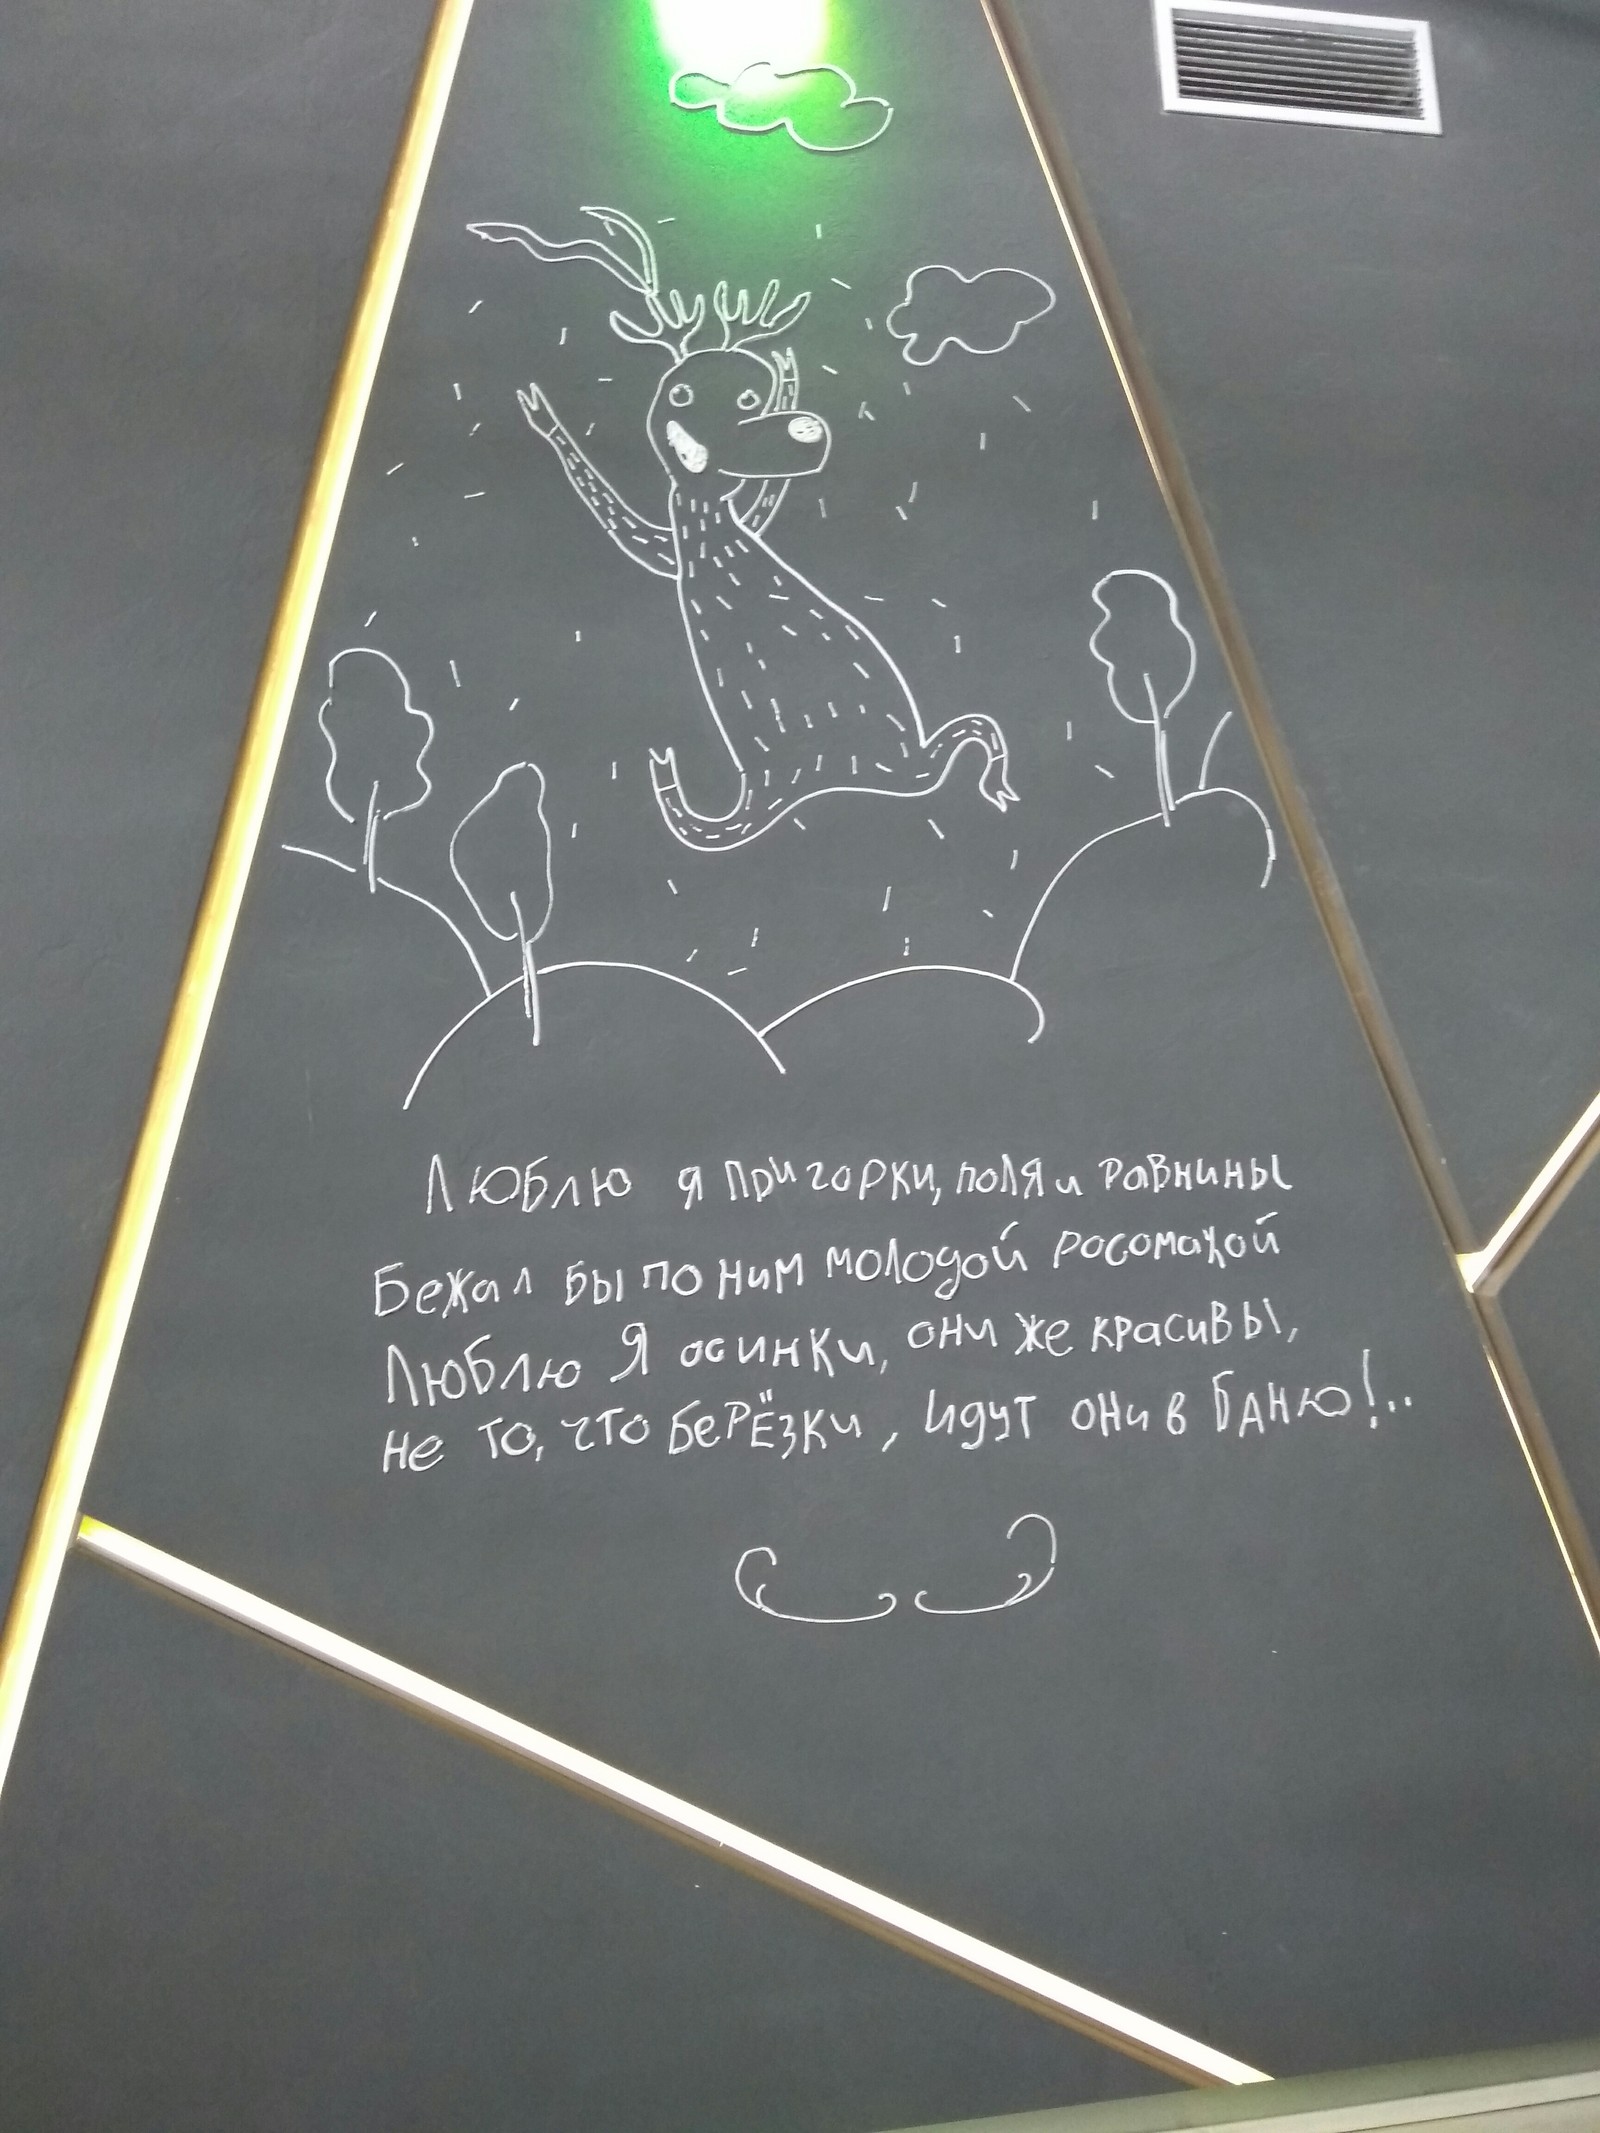 Люблю я пригорки, поля и равнины
Бежал бы по ним молодой росомахой
Люблю я осинки, они же красивы,
не то, что берёзки, идут они в баню!..